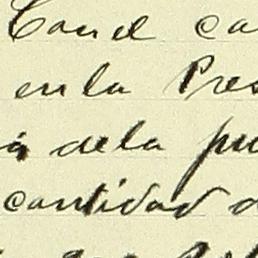 Con el ca
en la Pres
a de la pu
cantidad d